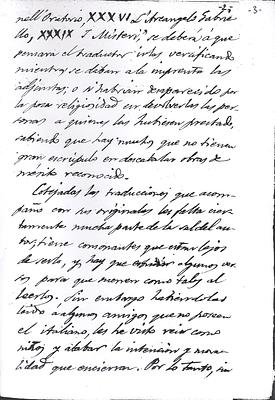 -3-
nell'Oratorio, XXXVI L'Arcangelo Gabrie-
llo, XXXIX I Misterj, se deberá a que
pensara el traductor irlas versificando
mientras se daban a la imprenta las
adjuntas; o si habrán desaparecido por
la poca religiosidad en devolverlas las per-
sonas a quienes las hubiesen prestado,
sabiendo que hay muchos que no tienen
gran escrúpulo en descabalar obras de
mérito reconocido.
Cotejadas las traducciones que acom-
paño con sus originales les falta cier-
tamente mucha parte de la sal del au-
tor; tiene consonantes que están lejos
de serlo, y hay que algunos ver-
sos para que suenen como tales al
leerlos. Sin embargo habiéndolas
leido a algunos amigos que no poseen
el italiano, les he visto reir como
niños y alabar la intención y mora-
lidad que encierran. Por lo tanto, sin